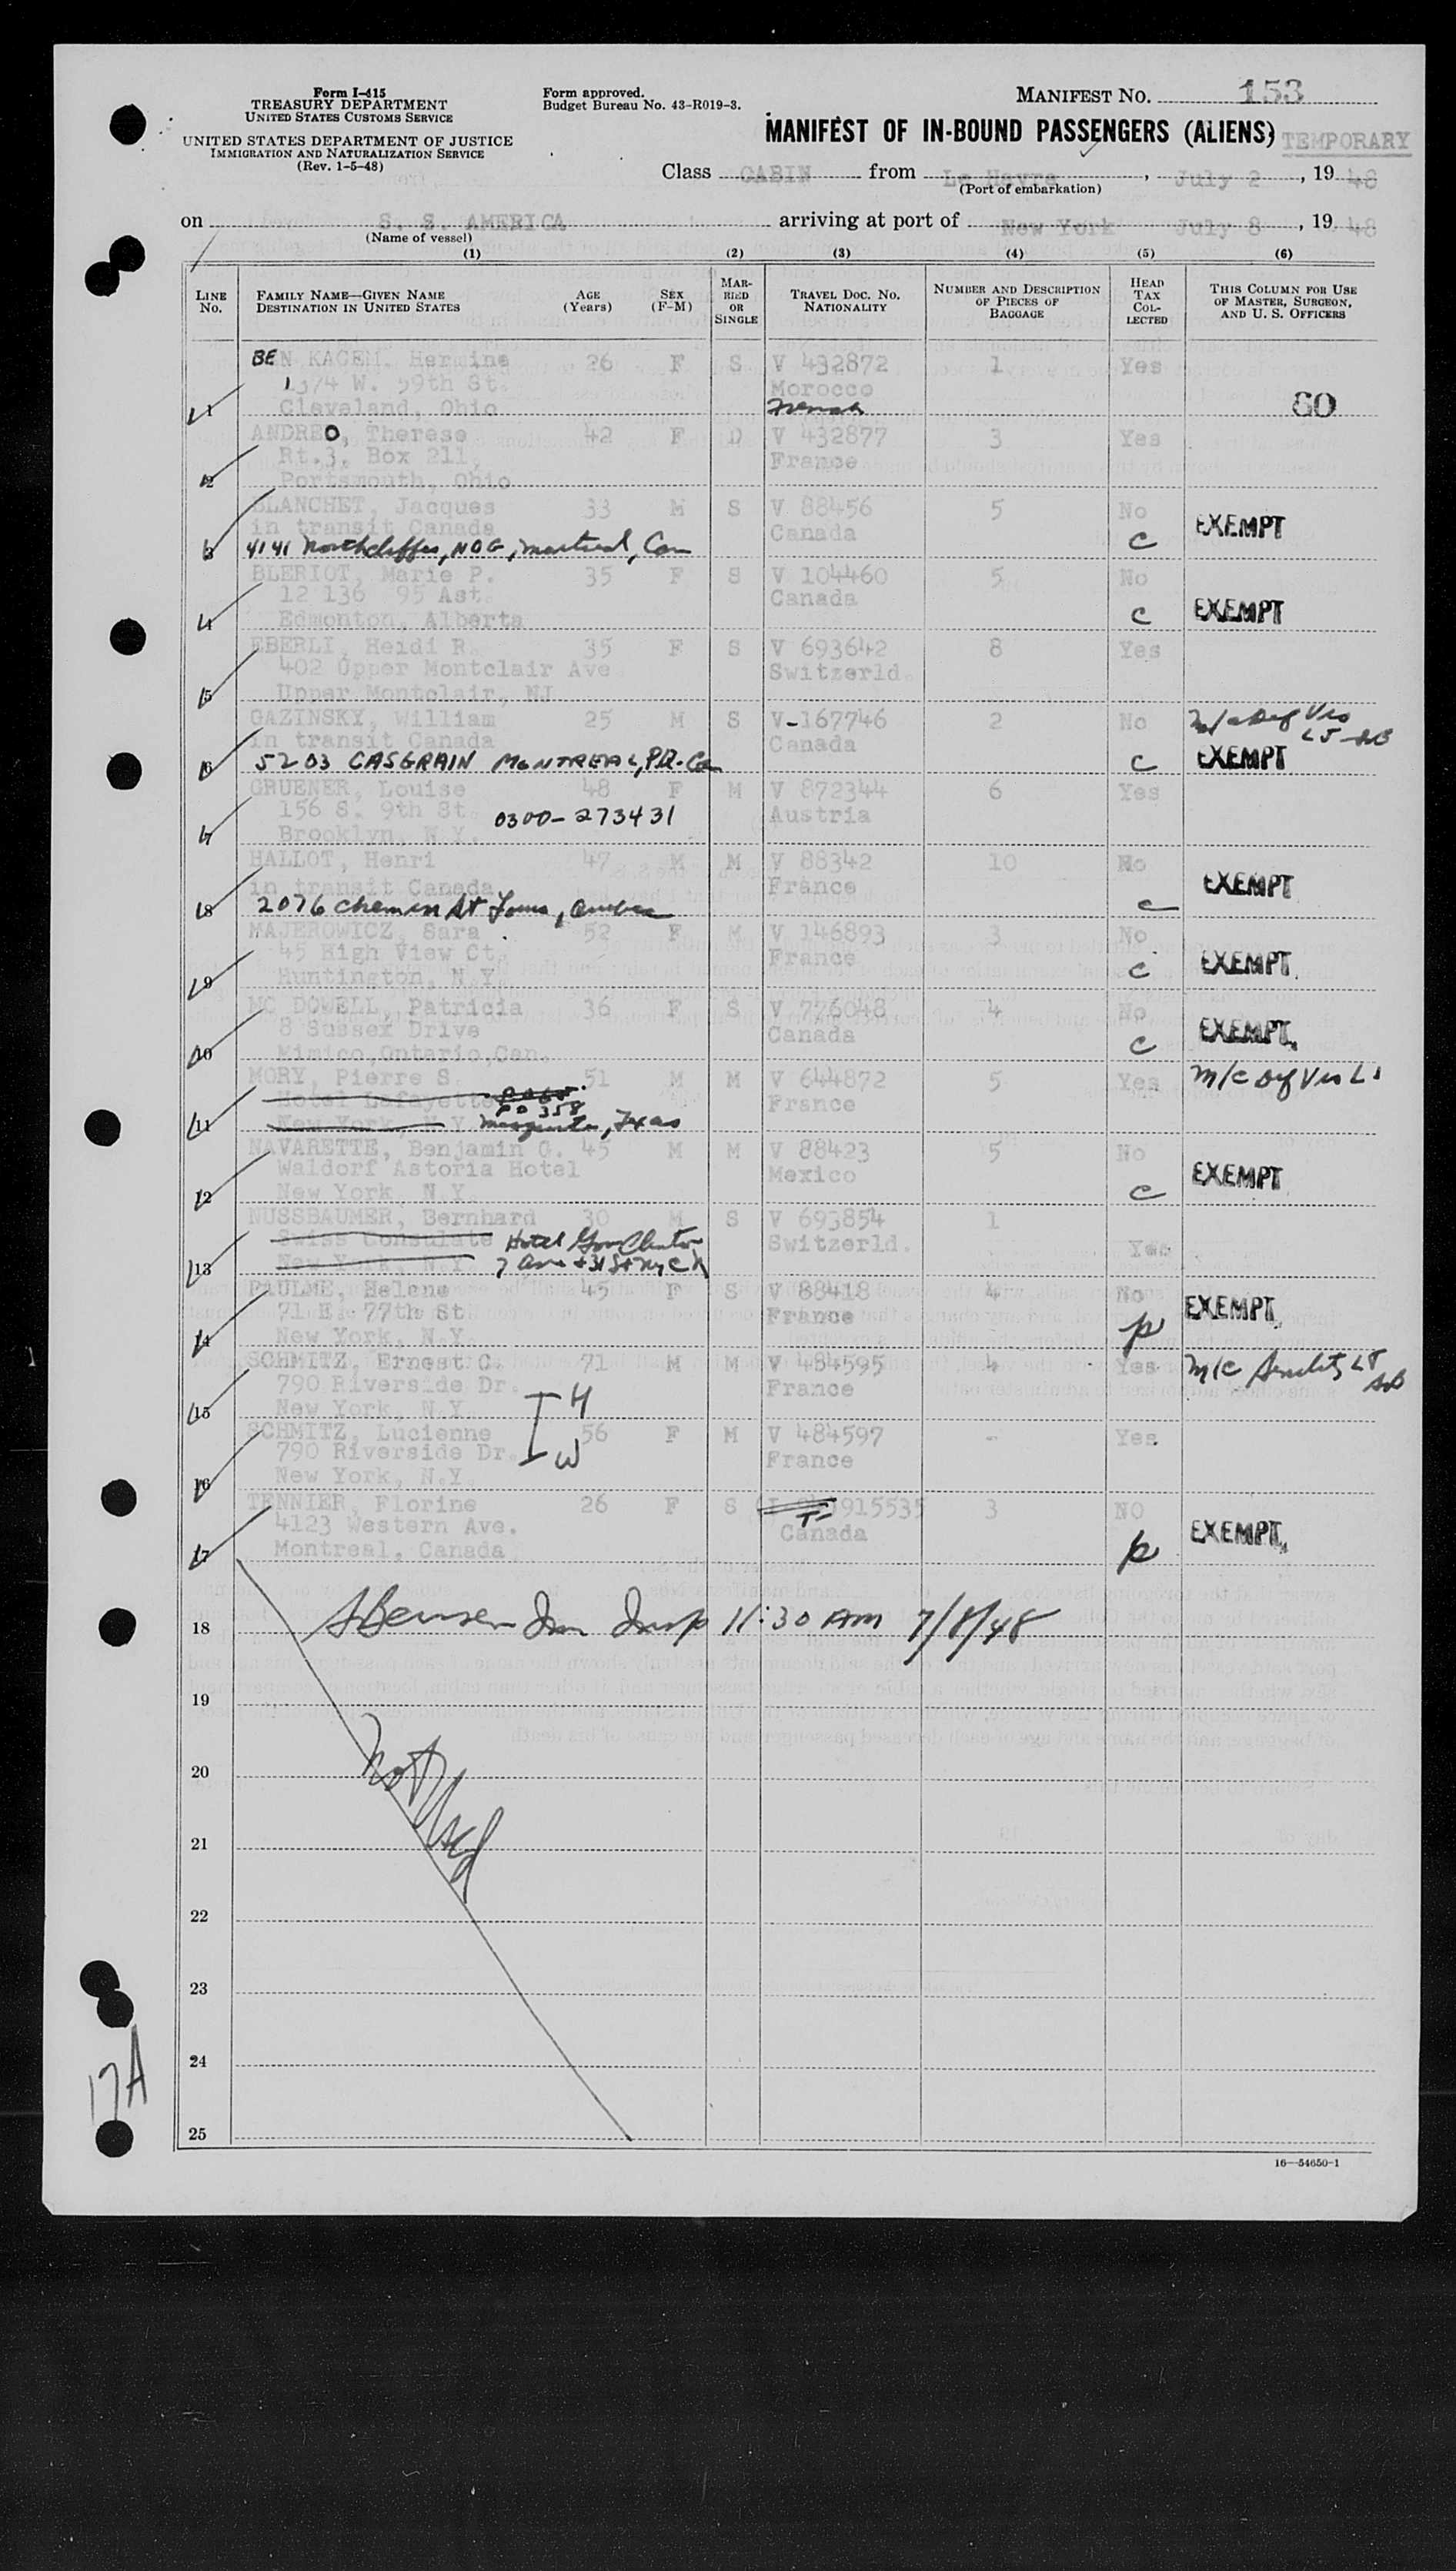 Form I-415
TREASURY DEPARTMENT
UNITED STATES CUSTOMS SERVICE
UNITED STATES DEPARTMENT OF JUSTICE
IMMIGRATION AND NATURALIZATION SERVICE
(Rev. 1-5-48)
Form approved.
Budget Bureau No. 43-R019-3.
MANIFEST NO. 153
MANIFEST OF IN-BOUND PASSENGERS (ALIENS) TEMPORARY
Class CABIN from Le Havre, July 2, 19 48
(Port of embarkation)
on S. S. AMERICA arriving at port of New York July 8, 19 48
(Name of vessel)
(1) (2) (3) (4) (5) (6)
LINE No. FAMILY NAME—GIVEN NAME DESTINATION IN UNITED STATES AGE (Years) SEX (F-M) MARRIED OR SINGLE TRAVEL DOC. NO. NATIONALITY NUMBER AND DESCRIPTION OF PIECES OF BAGGAGE HEAD TAX COLLECTED THIS COLUMN FOR USE OF MASTER, SURGEON, AND U. S. OFFICERS
BEN KACEM, Hermine 26 F S V 432872 1 Yes
1374 W. 59th St. Morocco
1 Cleveland, Ohio French 60
ANDREO, Therese 42 F D V 432877 3 Yes
Rt.3, Box 211, France
2 Portsmouth, Ohio
BLANCHET, Jacques 33 M S V 88456 5 No
in transit Canada Canada EXEMPT
3 4141 Northcliffe, NDG, Montreal, Can C
BLERIOT, Marie P. 35 F S V 104460 5 No
12 136 95 Ast. Canada
4 Edmonton, Alberta C EXEMPT
EBERLI, Heidi R. 35 F S V 693642 8 Yes
402 Upper Montclair Ave Switzerld.
5 Upper Montclair, NJ
GAZINSKY, William 25 M S V-167746 2 No
in transit Canada Canada
6 5203 CASGRAIN MONTREAL, PQ. Ca C EXEMPT
GRUENER, Louise 48 F M V 872344 6 Yes
156 S. 9th St. 0300-273431 Austria
7 Brooklyn, N.Y.
HALLOT, Henri 47 M M V 88342 10 No
in transit Canada France EXEMPT
8 2076 Chemin St Louis, Quebec C
MAJEROWICZ, Sara 52 F M V 146893 3 No
45 High View Ct. France
9 Huntington, N.Y. C EXEMPT
MC DOWELL, Patricia 36 F S V 776048 4 No
8 Sussex Drive Canada
10 Mimico, Ontario, Can. C EXEMPT
MORY, Pierre S. 51 M M V 644872 5 Yes M/C Def Vis L1
Hotel Lafayette PO 358 France
11 New York, N.Y. Mesquite, Texas
NAVARETTE, Benjamin G. 45 M M V 88423 5 No
Waldorf Astoria Hotel Mexico EXEMPT
12 New York, N.Y. C
NUSSBAUMER, Bernhard 30 M S V 693854 1
Swiss Consulate Hotel Gov Clinton Switzerld. Yes
13 New York, N.Y. 7 Ave + 31 St NYC N
PAULME, Helene 45 F S V 88418 4 No
71 E. 77th St France EXEMPT
14 New York, N.Y. p
SCHMITZ, Ernest C. 71 M M V 484595 4 Yes M/C Senility LT
790 Riverside Dr. H France
15 New York, N.Y.
SCHMITZ, Lucienne 56 F M V 484597 - Yes
790 Riverside Dr. W France
16 New York, N.Y.
TENNIER, Florine 26 F S 915535 3 NO
4123 Western Ave. Canada EXEMPT
17 Montreal, Canada p
18 Imm Insp 11:30 AM 7/8/48
19
20 Not Used
21
22
23
24
25
17A
16—54650-1